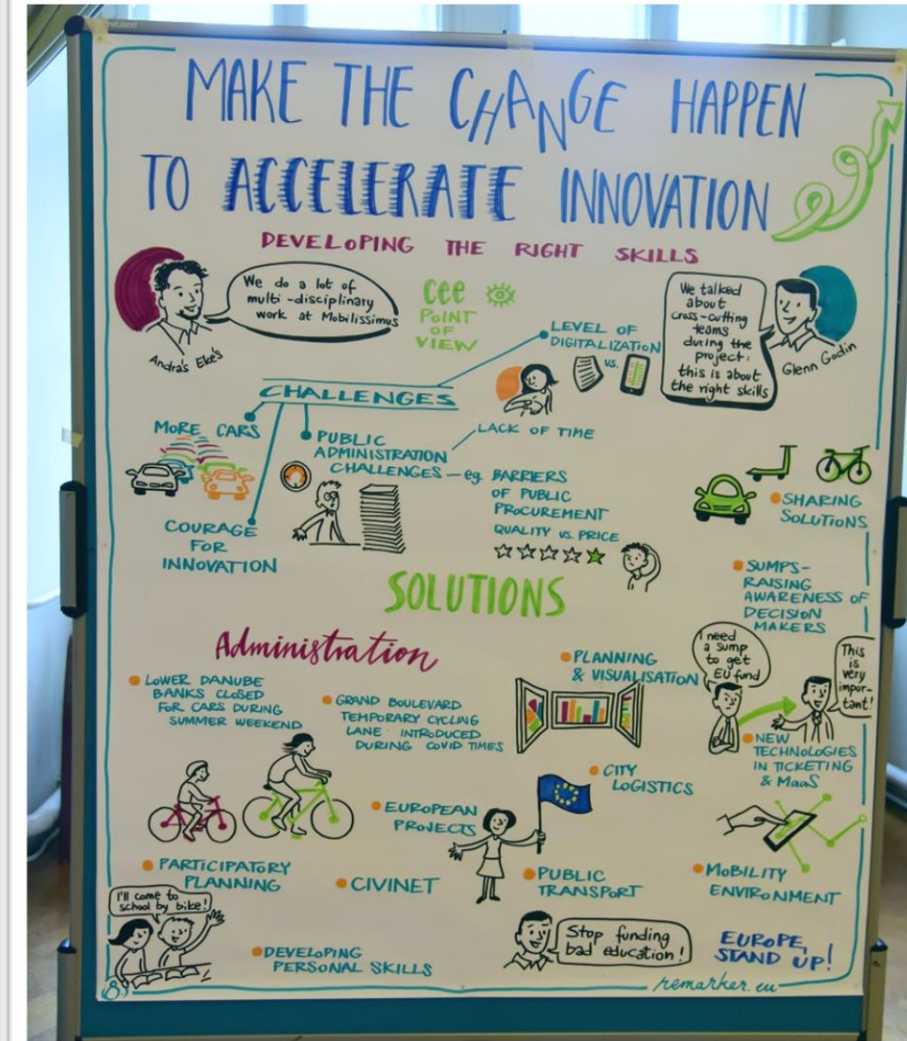 MAKE THE CHANGE HAPPEN
TO ACCELERATE INNOVATION
DEVELOPING THE RIGHT SKILLS
We do a lot of
multi-disciplinary
work at Mobilissimus
András Ekés
cee
POINT
OF
VIEW
We talked
about
cross-cutting
teams
during the
project:
this is about
the right skills
Glenn Godin
CHALLENGES
LEVEL OF
DIGITALIZATION
VS.
MORE CARS
PUBLIC
ADMINISTRATION
CHALLENGES – eg.
LACK OF TIME
BARRIERS
OF PUBLIC
PROCUREMENT
QUALITY VS. PRICE
COURAGE
FOR
INNOVATION
SHARING
SOLUTIONS
SOLUTIONS
SUMPS-
RAISING
AWARENESS OF
DECISION
MAKERS
Administration
LOWER DANUBE
BANKS CLOSED
FOR CARS DURING
SUMMER WEEKEND
GRAND BOULEVARD
TEMPORARY CYCLING
LANE INTRODUCED
DURING COVID TIMES
PLANNING
& VISUALISATION
I need
a sump
to get
EU fund
This
is
very
impor-
tant!
NEW
TECHNOLOGIES
IN TICKETING
& MaaS
CITY
LOGISTICS
EUROPEAN
PROJECTS
PARTICIPATORY
PLANNING
CIVINET
PUBLIC
TRANSPORT
MOBILITY
ENVIRONMENT
I'll come to
school by bike!
DEVELOPING
PERSONAL SKILLS
Stop funding
bad education!
EUROPE,
STAND UP!
remarker.eu